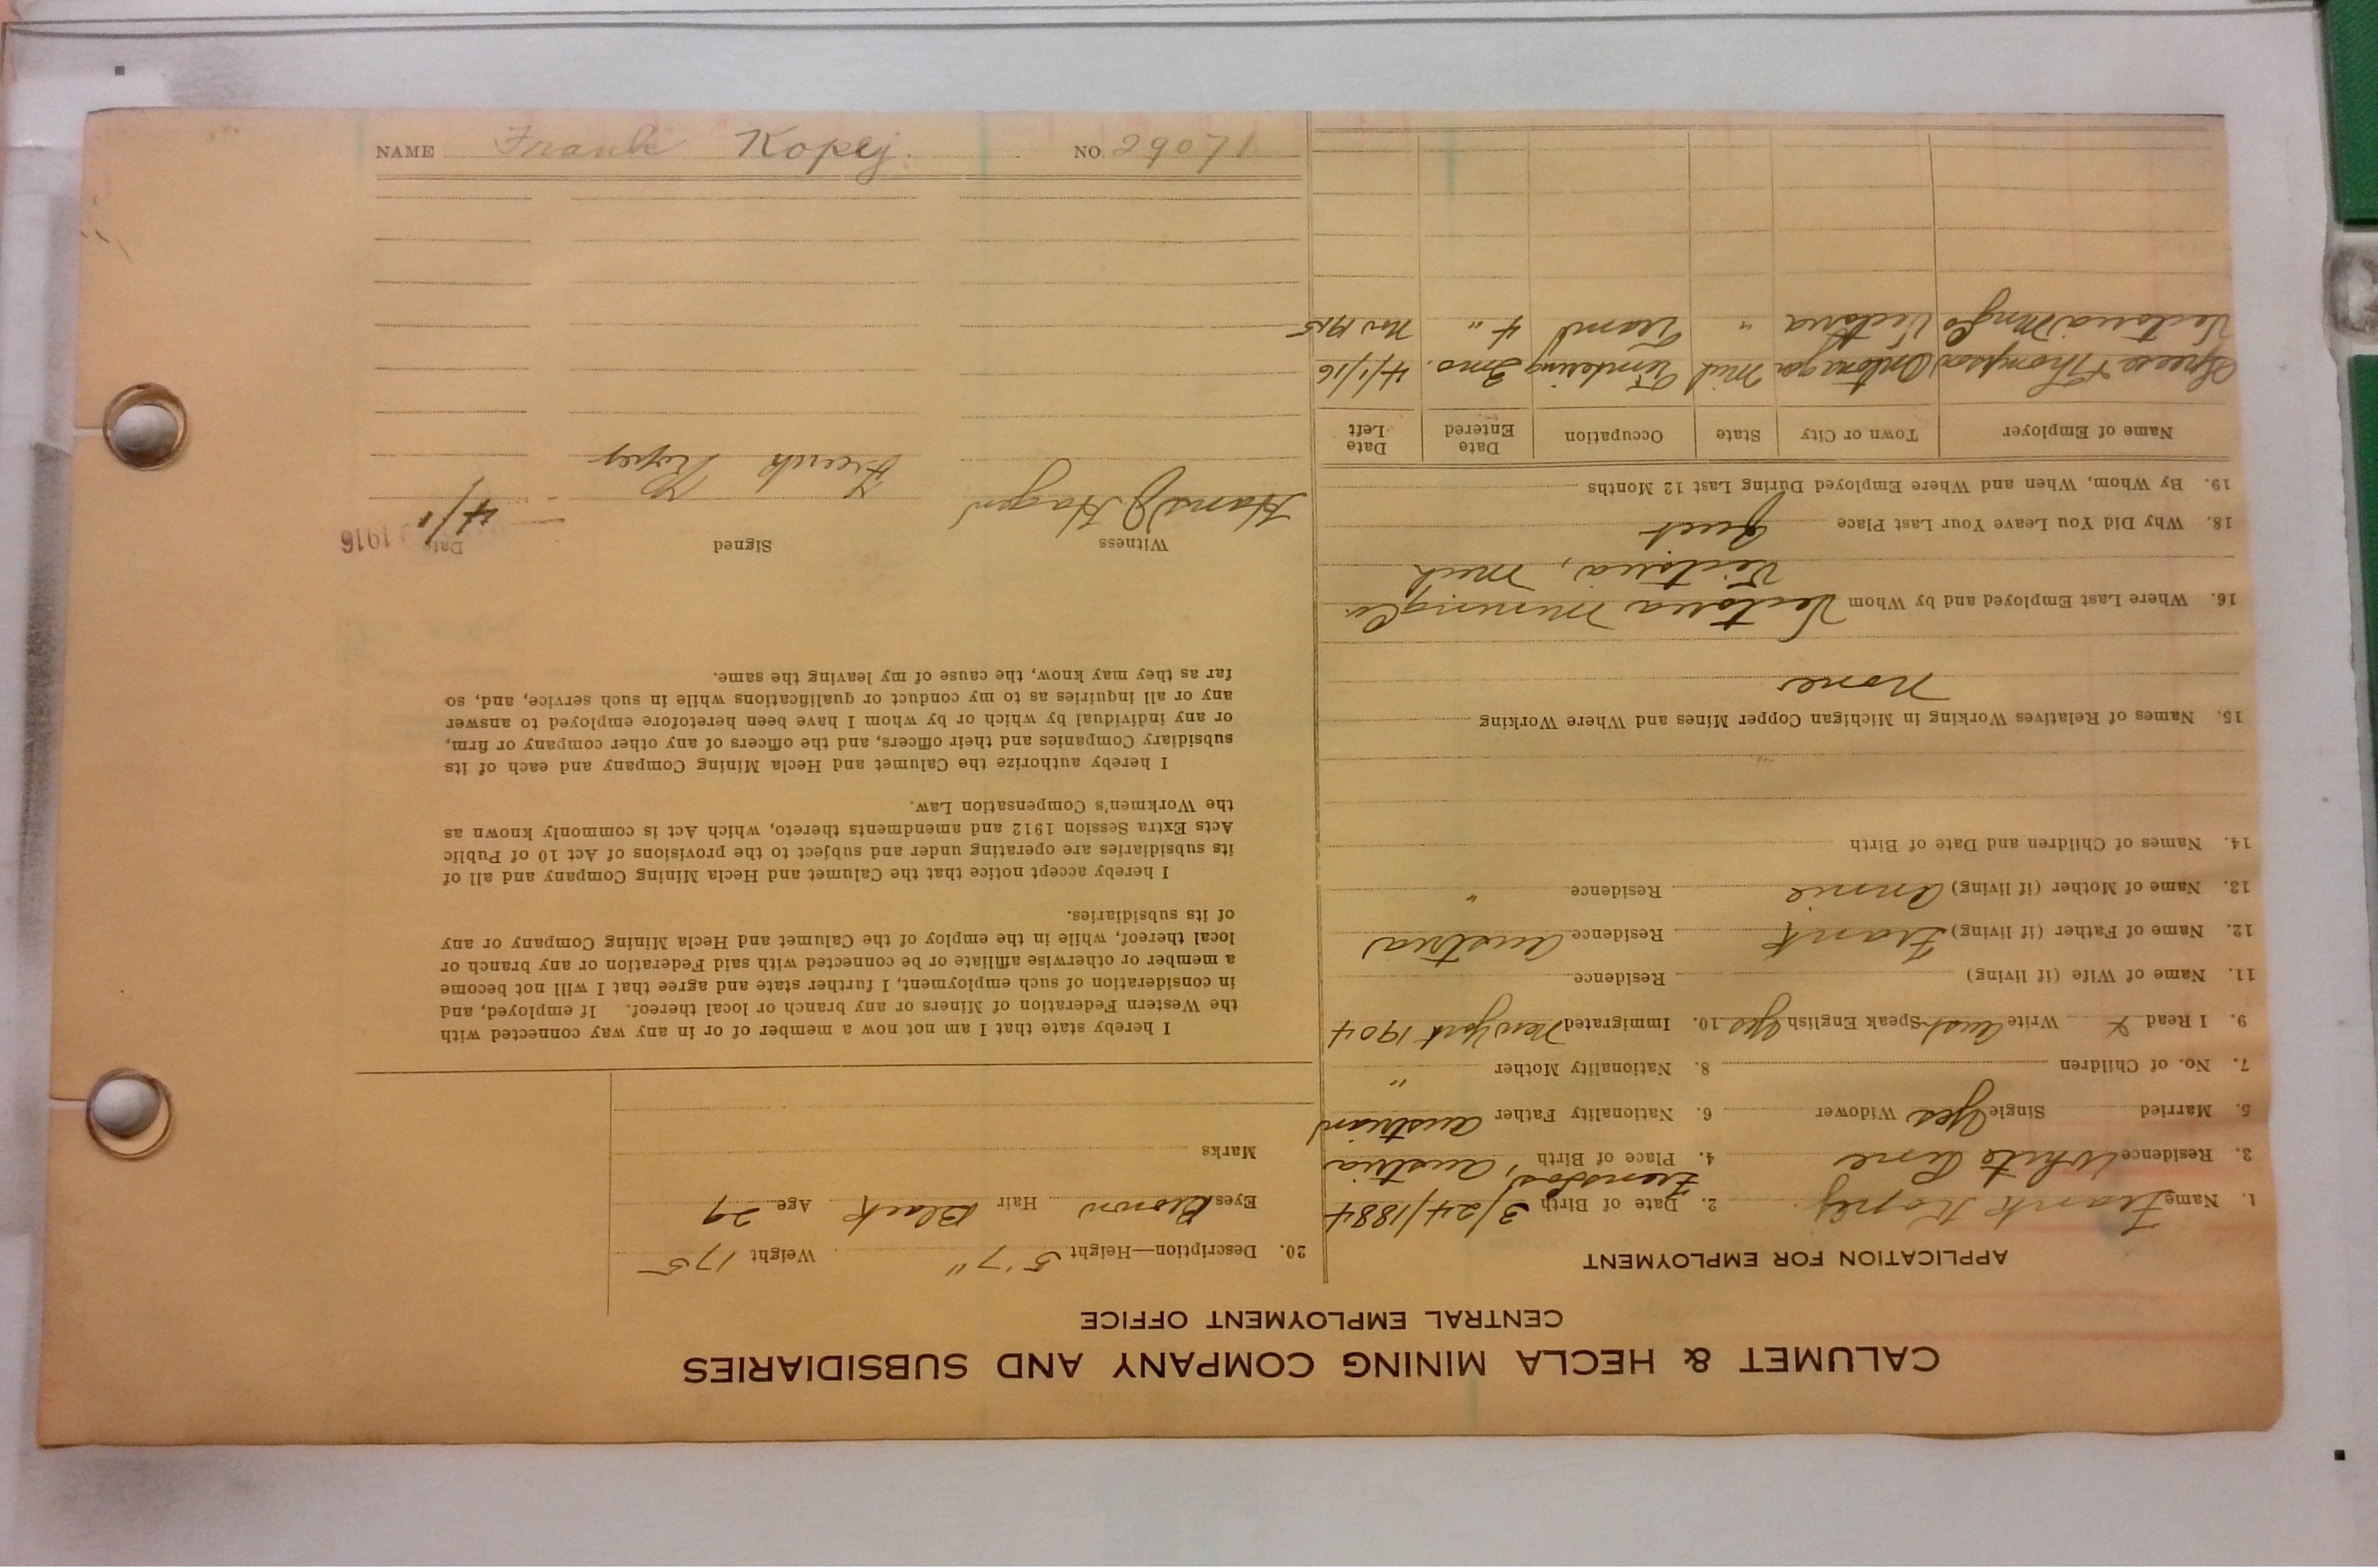 CALUMET & HECLA MINING COMPANY AND SUBSIDIARIES
CENTRAL EMPLOYMENT OFFICE
APPLICATION FOR EMPLOYMENT
1. Name Frank Kopej 2. Date of Birth 3/24/1884
3. Residence White Pine 4. Place of Birth Austria
5. Married Single Yes Widower 6. Nationality Father Austrian
7. No. of Children 8. Nationality Mother "
9. I Read & Write Aust Speak English Yes 10. Immigrated New York 1904
11. Name of Wife (if living) Residence
12. Name of Father (if living) Frank Residence Austria
13. Name of Mother (if living) Annie Residence "
14. Names of Children and Date of Birth
15. Names of Relatives Working in Michigan Copper Mines and Where Working
None
16. Where Last Employed and by Whom Victoria Mining Co.
Victoria, Mich
18. Why Did You Leave Your Last Place Quit
19. By Whom, When and Where Employed During Last 12 Months
Name of Employer Town or City State Occupation Date Entered Date Left
Thompson Ontonagon Mich Timbering 3 mo. 4/1/16
Victoria Mng Co Victoria " Tram 4 " Nov 1915
20. Description—Height 5'7" Weight 175
Eyes Brown Hair Black Age 29
Marks
I hereby state that I am not now a member of or in any way connected with
the Western Federation of Miners or any branch or local thereof. If employed, and
in consideration of such employment, I further state and agree that I will not become
a member or otherwise affiliate or be connected with said Federation or any branch or
local thereof, while in the employ of the Calumet and Hecla Mining Company or any
of its subsidiaries.
I hereby accept notice that the Calumet and Hecla Mining Company and all of
its subsidiaries are operating under and subject to the provisions of Act 10 of Public
Acts Extra Session 1912 and amendments thereto, which Act is commonly known as
the Workmen's Compensation Law.
I hereby authorize the Calumet and Hecla Mining Company and each of its
subsidiary Companies and their officers, and the officers of any other company or firm,
or any individual by which or by whom I have been heretofore employed to answer
any or all inquiries as to my conduct or qualifications while in such service, and, so
far as they may know, the cause of my leaving the same.
Witness Signed Date 1916
Hans J. Hagen Frank Kopej 4/1
NAME Frank Kopej. NO. 29071